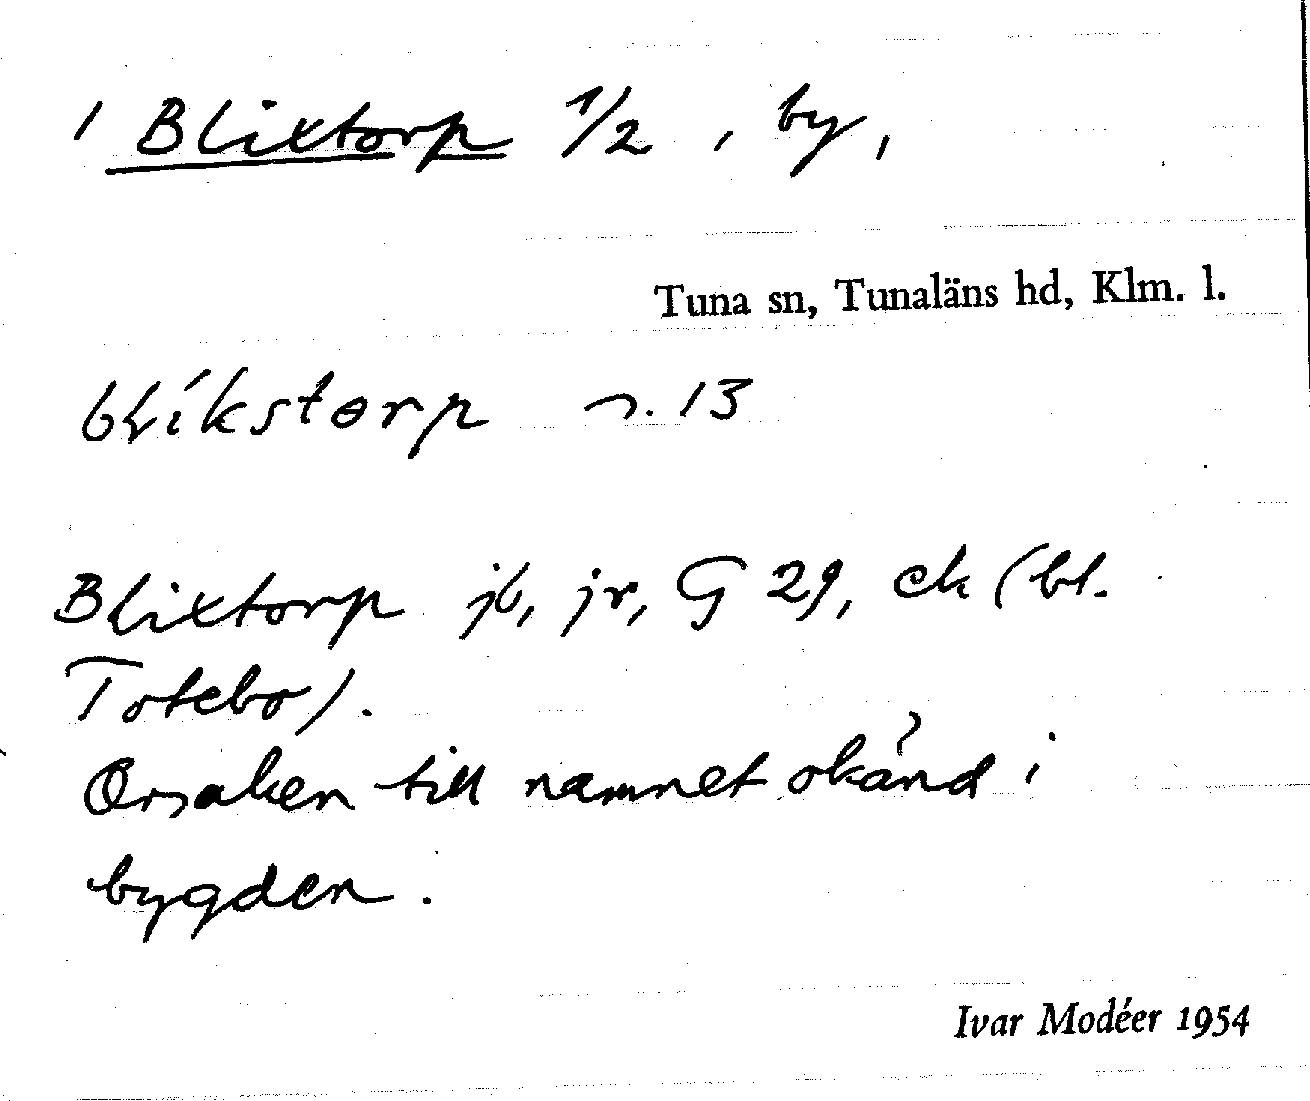 1 Blixtorp 1/2, by,
Tuna sn, Tunaläns hd, Klm. l.
blíkstorp n. 13
Blixtorp jb, jr, G 29, ek (bl.
Totebo).
Orsaken till namnet okänd i
bygden.
Ivar Modéer 1954